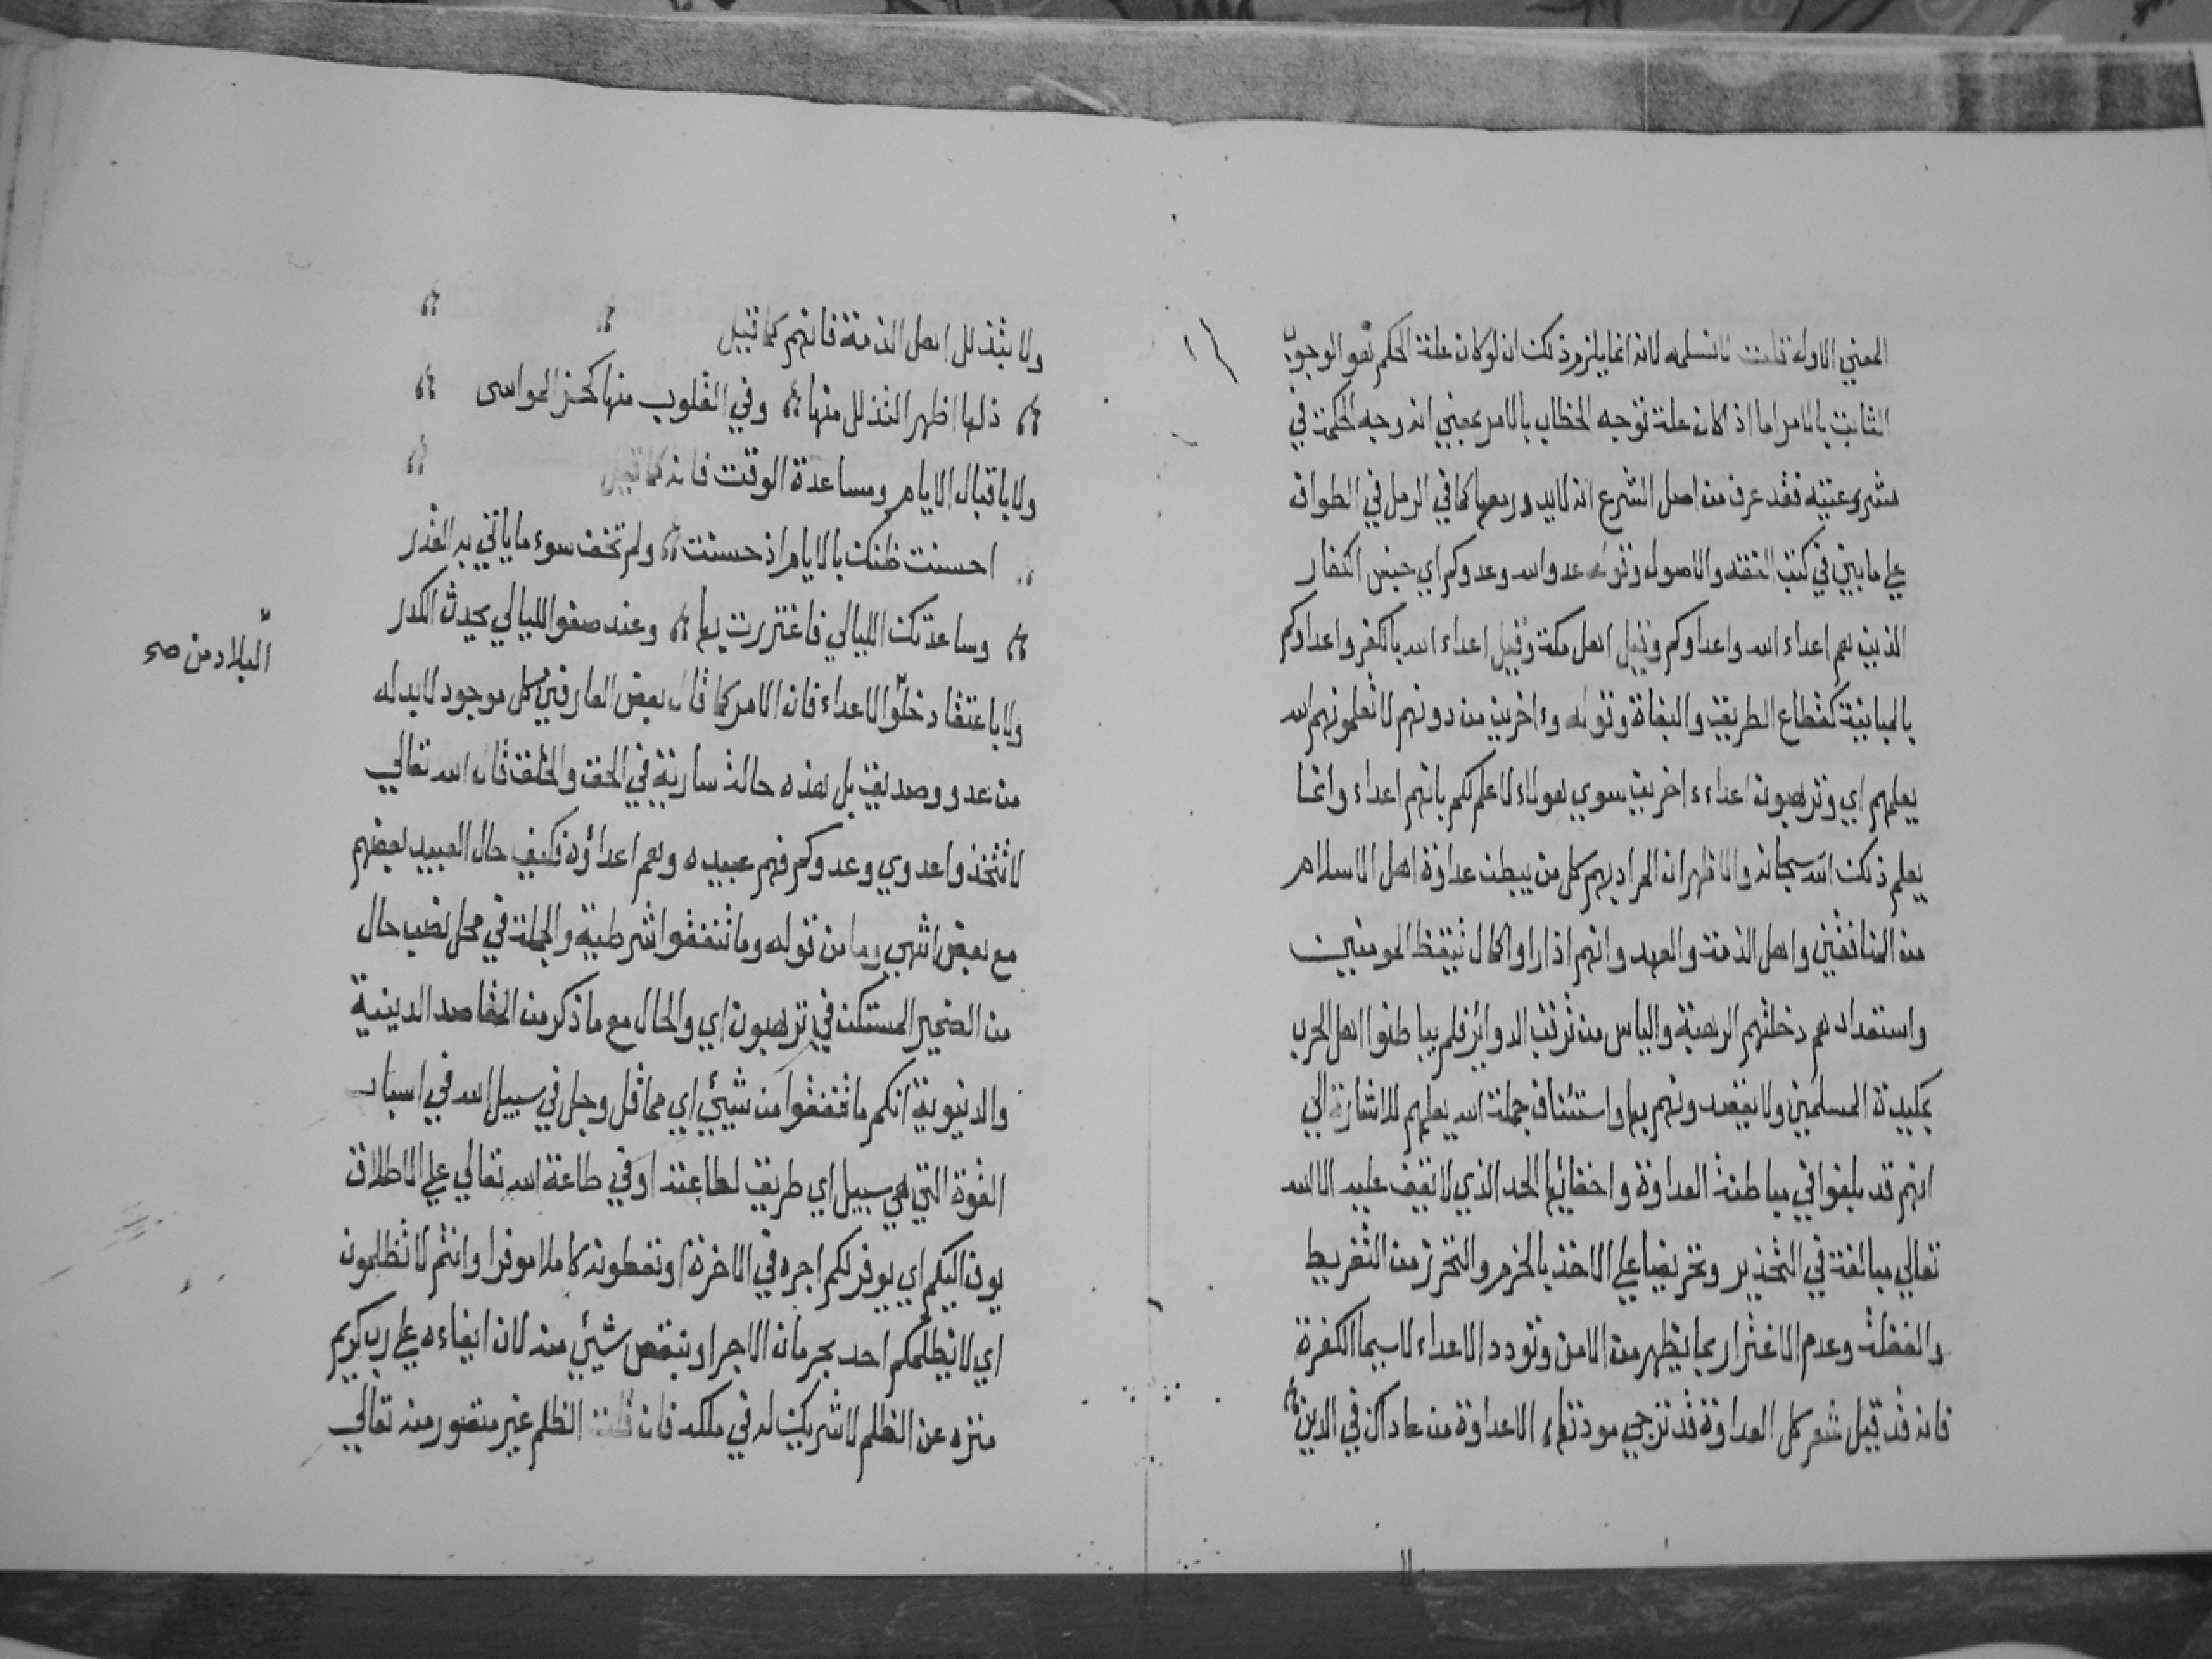 المعني الاوله قلت لا نسلمه لانه انما يلزم ذلك ان لو كان علة الحكم نفو الوجوب
الثابت بالامر اما اذ كان علة توجه الخطاب بالامر بمعني انه وجه الحكمة في
مشروعيته فقد عرف من اصل الشرع انه لا يدور معها كما في الرمل في الطواف
علي ما بين في كتب الفقه والاصول وقوله عدو الله وعدوكم اي جنس الكفار
الذين هم اعداء الله واعداوكم وقيل اهل مكة وقيل اعداء الله بالكفر واعداوكم
بالمباينة كقطاع الطريق والبغاة وقوله واخرين من دونهم لا تعلمونهم الله
يعلمهم اي وترهبون اعداء اخرين سوي هولاء لا علم لكم بانهم اعداء وانما
يعلم ذلك الله سبحانه والاظهر ان المراد بهم كل من يبطن عداوة اهل الاسلام
من المنافقين واهل الذمة والعهد وانهم اذا راوا كمال تيقظ المومنين
واستعدادهم دخلتهم الرهبة والياس من ترقب الدوائر فلم يباطنوا اهل الحرب
بمكيدة المسلمين ولا يقصدونهم بها واستئناف جملة الله يعلمهم للاشارة الي
انهم قد بلغوا في مباطنة العداوة واخفائها الحد الذي لا يقف عليه الا الله
تعالي مبالغة في التحذير وتحريضا علي الاخذ بالحزم والتحرز من التفريط
والغفلة وعدم الاغترار بما يظهر من الامن وتودد الاعداء لا سيما الكفرة
فانه قد قيل شعر كل العداوة قد ترجي مودتها الا عداوة من عاداك في الدين
ولا بتذلل اهل الذمة فانهم كما قيل
ذلها اظهر التذلل منها وفي القلوب منها كحز المواسى
ولا باقبال الايام ومساعدة الوقت فانه كما قيل
احسنت ظنك بالايام اذ حسنت ولم تخف سوء ما ياتي به القدر
وساعدتك الليالي فاغتررت بها وعند صفو الليالي يحدث الكدر
ولا باعتقاد خلو الاعداء فان الامر كما قال بعض العارفين كل موجود لا بد له
البلاد من صح
من عدو وصديق بل هذه حالة سارية في الحق والخلق قال الله تعالي
لا تتخذوا عدوي وعدوكم فهم عبيده وهم اعداؤه فكيف حال العبيد بعضهم
مع بعض انتهي وما من قوله وما تنفقوا شرطية والجملة في محل نصب حال
من الضمير المستكن في ترهبون اي والحال مع ما ذكر من المقاصد الدينية
والدنيوية انكم ما تنفقوا من شيئ اي مما قل وجل في سبيل الله في اسباب
القوة التي هي سبيل اي طريق لطاعته او في طاعة الله تعالي علي الاطلاق
يوف اليكم اي يوفر لكم اجره في الاخرة او تعطونه كاملا موفرا وانتم لا تظلمون
اي لا يظلمكم احد بحرمان الاجر او بنقص شيئ منه لان ايفاءه علي رب كريم
منزه عن الظلم لا شريك له في ملكه فان قلت الظلم غير متصور منه تعالي